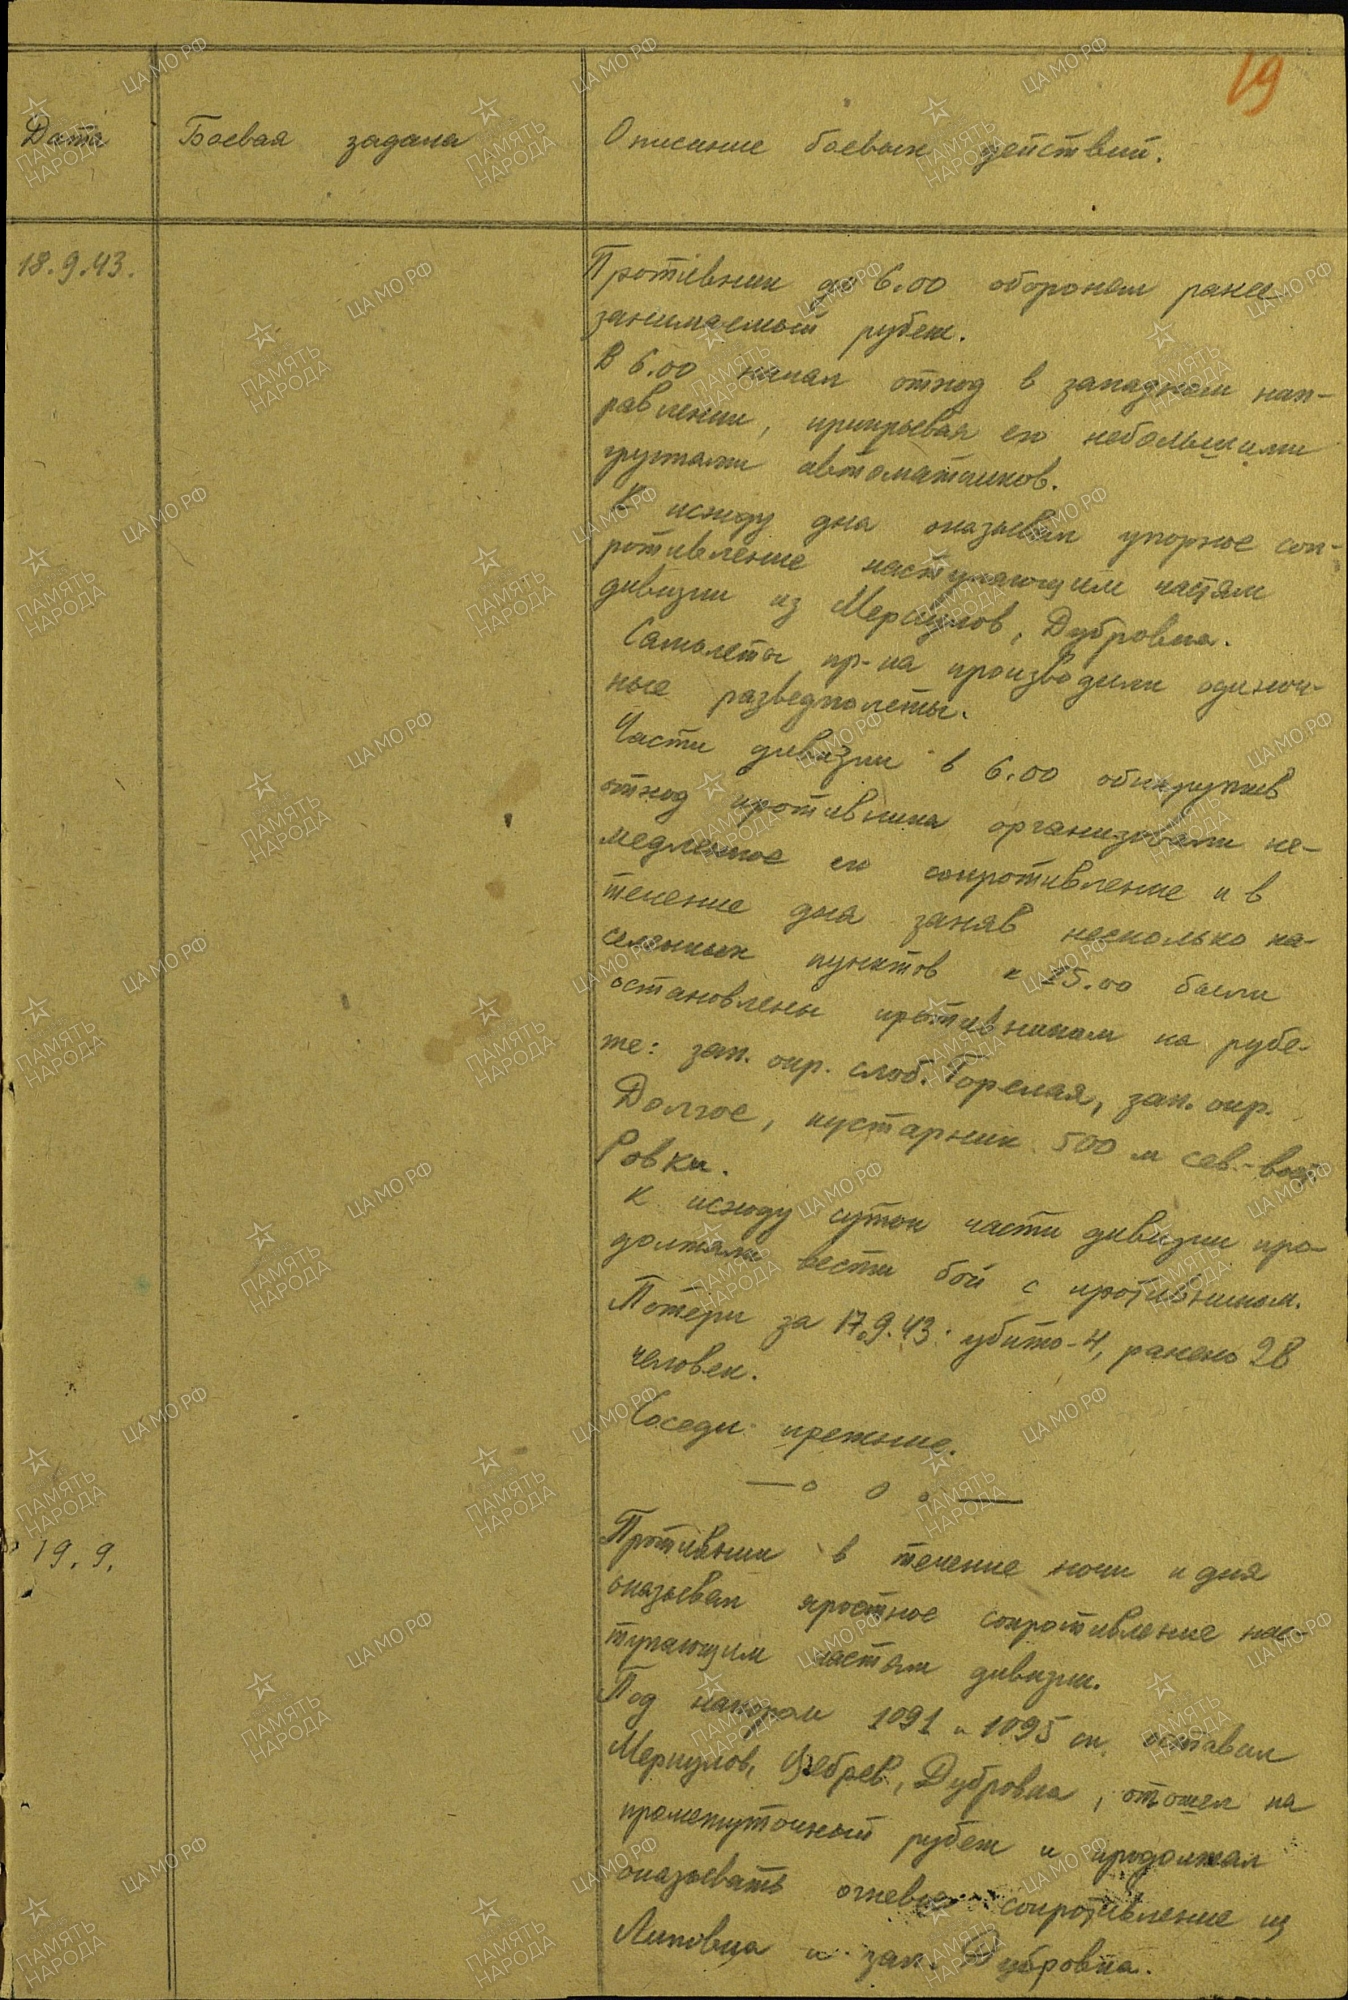 19
Дата Боевая задача Описание боевых действий.
18.9.43.
Противник до 6.00 оборонял ранее
занимаемый рубеж.
В 6.00 начал отход в западном нап-
равлении, прикрывая его небольшими
группами автоматчиков.
К исходу дня оказывал упорное соп-
ротивление наступающим частям
дивизии из Меркулов, Дубровка.
Самолеты пр-ка производили одиноч-
ные разведполеты.
Части дивизии в 6.00 обнаружив
отход противника организовали не-
медленное его сопротивление и в
течение дня заняв несколько на-
селенных пунктов к 15.00 были
остановлены противником на рубе-
же: зап. окр. слоб. Горелая, зап. окр.
Долгое, кустарник 500 м сев.-вост
Ровки.
К исходу суток части дивизии про-
должали вести бой с противником.
Потери за 17.9.43: убито-4, ранено 28
человек.
Соседи прежние.
—о о о—
19.9.
Противник в течение ночи и дня
оказывал яростное сопротивление нас-
тупающим частям дивизии.
Под напором 1091 и 1095 сп. оставил
Меркулов, Дубровка, отошел на
промежуточный рубеж и продолжал
оказывать огневое сопротивление из
Липовка и зап. Дубровка.
ПАМЯТЬ НАРОДА
ЦАМО.РФ